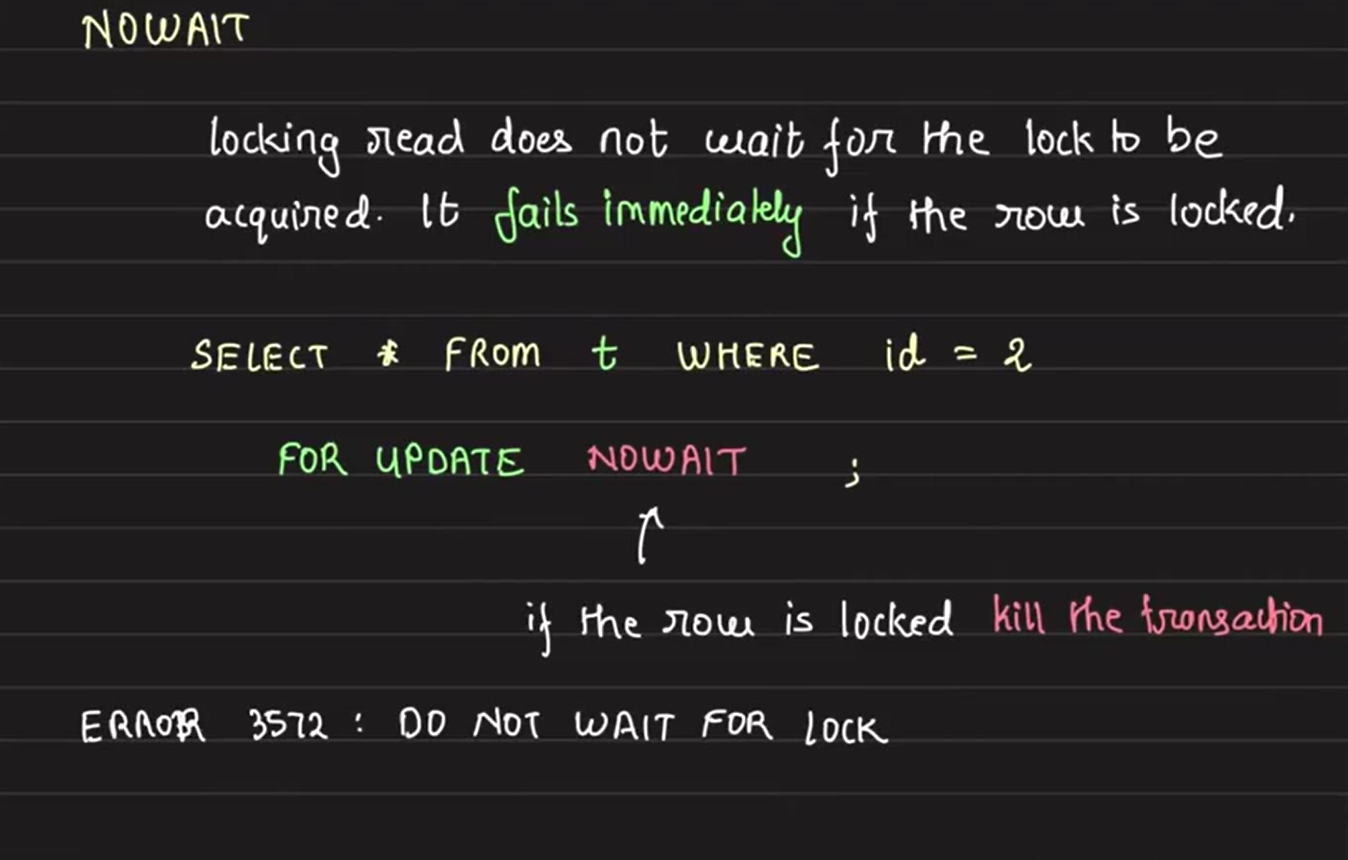 NOWAIT
locking read does not wait for the lock to be
acquired. It fails immediately if the row is locked.
SELECT * FROM t WHERE id = 2
FOR UPDATE NOWAIT ;
if the row is locked kill the transaction
ERROR 3572 : DO NOT WAIT FOR LOCK